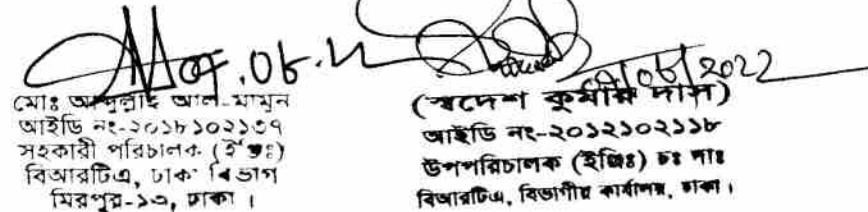 ০৭.০৮.২২
০৭/০৮/2022
মোঃ আব্দুল্লাহ আল-মামুন
আইডি নং-২০১৮১০২১৩৭
সহকারী পরিচালক (ইঞ্জিঃ)
বিআরটিএ, ঢাকা বিভাগ
মিরপুর-১৩, ঢাকা ।
(স্বদেশ কুমার দাস)
আইডি নং-২০১২১০২১১৮
উপপরিচালক (ইঞ্জিঃ) চঃ দাঃ
বিআরটিএ, বিভাগীয় কার্যালয়, ঢাকা ।